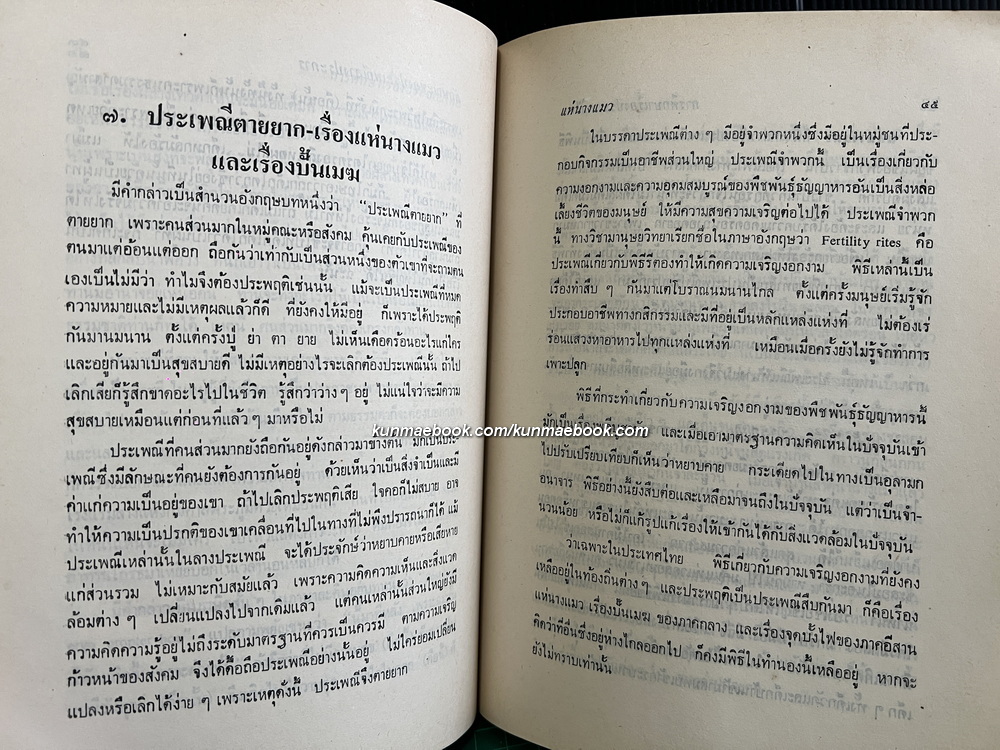 ๗. ประเพณีตายยาก-เรื่องแห่นางแมว
และเรื่องปั้นเมฆ
มีคำกล่าวเป็นสำนวนอังกฤษบทหนึ่งว่า “ประเพณีตายยาก” ที่
ตายยาก เพราะคนส่วนมากในหมู่คณะหรือสังคม คุ้นเคยกับประเพณีของ
ตนมาแต่อ้อนแต่ออก ถือกันว่าเท่ากับเป็นส่วนหนึ่งของตัวเขาที่จะถามตน
เองเป็นไม่มีว่า ทำไมจึงต้องประพฤติเช่นนั้น แม้จะเป็นประเพณีที่หมด
ความหมายและไม่มีเหตุผลแล้วก็ดี ที่ยังคงให้มีอยู่ ก็เพราะได้ประพฤติ
กันมานมนาน ตั้งแต่ครั้งปู่ ย่า ตา ยาย ไม่เห็นเดือดร้อนอะไรแก่ใคร
และอยู่กันมาเป็นสุขสบายดี ไม่มีเหตุอย่างไรจะเลิกต้องประเพณีนั้น ถ้าไป
เลิกเสียก็รู้สึกขาดอะไรไปในชีวิต รู้สึกว่าว่าง ๆ อยู่ ไม่แน่ใจว่าจะมีความ
สุขสบายเหมือนแต่ก่อนที่แล้ว ๆ มาหรือไม่
ประเพณีที่คนส่วนมากยังถือกันอยู่ดังกล่าวมาข้างต้น มักเป็นประ-
เพณีซึ่งมีลักษณะที่คนยังต้องการกันอยู่ ด้วยเห็นว่าเป็นสิ่งจำเป็นและมี
ค่าแก่ความเป็นอยู่ของเขา ถ้าไปเลิกประพฤติเสีย ใจคอก็ไม่สบาย อาจ
ทำให้ความเป็นปรกติของเขาเคลื่อนที่ไปในทางที่ไม่พึงปรารถนาก็ได้ แม้
ประเพณีเหล่านั้นในลางประเพณี จะได้ประจักษ์ว่าหยาบคายหรือเสียหาย
แก่ส่วนรวม ไม่เหมาะกับสมัยแล้ว เพราะความคิดความเห็นและสิ่งแวด
ล้อมต่าง ๆ เปลี่ยนแปลงไปจากเดิมแล้ว แต่คนเหล่านั้นส่วนใหญ่ยังมี
ความคิดความรู้อยู่ไม่ถึงระดับมาตรฐานที่ควรเป็นควรมี ตามความเจริญ
ก้าวหน้าของสังคม จึงได้ดื้อถือประเพณีอย่างนั้นอยู่ ไม่ใคร่ยอมเปลี่ยน
แปลงหรือเลิกได้ง่าย ๆ เพราะเหตุดังนี้ ประเพณีจึงตายยาก
แห่นางแมว ๔๕
ในบรรดาประเพณีต่าง ๆ มีอยู่จำพวกหนึ่งซึ่งมีอยู่ในหมู่ชนที่ประ-
กอบกิจกรรมเป็นอาชีพส่วนใหญ่ ประเพณีจำพวกนี้ เป็นเรื่องเกี่ยวกับ
ความงอกงามและความอุดมสมบูรณ์ของพืชพันธุ์ธัญาหารอันเป็นสิ่งหล่อ
เลี้ยงชีวิตของมนุษย์ ให้มีความสุขความเจริญต่อไปได้ ประเพณีจำพวก
นี้ ทางวิชามานุษยวิทยาเรียกชื่อในภาษาอังกฤษว่า Fertility rites คือ
ประเพณีเกี่ยวกับพิธีรีตองทำให้เกิดความเจริญงอกงาม พิธีเหล่านี้เป็น
เรื่องทำสืบ ๆ กันมาแต่โบราณนมนานไกล ตั้งแต่ครั้งมนุษย์เริ่มรู้จัก
ประกอบอาชีพทางกสิกรรมและมีที่อยู่เป็นหลักแหล่งแห่งที่ ไม่ต้องเร่
ร่อนแสวงหาอาหารไปทุกแหล่งแห่งที่ เหมือนเมื่อครั้งยังไม่รู้จักทำการ
เพาะปลูก
พิธีที่กระทำเกี่ยวกับความเจริญงอกงามของพืชพันธุ์ธัญาหารนี้
kunmaebook.com/kunmaebook.com
มักเป็นเรื่อง และเมื่อเอามาตรฐานความคิดเห็นในปัจจุบันเข้า
ไปปรับเปรียบเทียบก็เห็นว่าหยาบคาย กระเดียดไปในทางเป็นอุลามก
อนาจาร พิธีอย่างนี้ยังสืบต่อและเหลือมาจนถึงในปัจจุบัน แต่ว่าเป็นจำ-
นวนน้อย หรือไม่ก็แก้รูปแก้เรื่องให้เข้ากันได้กับสิ่งแวดล้อมในปัจจุบัน
ว่าเฉพาะในประเทศไทย พิธีเกี่ยวกับความเจริญงอกงามที่ยังคง
เหลืออยู่ในท้องถิ่นต่าง ๆ และประพฤติเป็นประเพณีสืบกันมา ก็คือเรื่อง
แห่นางแมว เรื่องปั้นเมฆ ของภาคกลาง และเรื่องจุดบั้งไฟของภาคอีสาน
คิดว่าที่อื่นซึ่งอยู่ห่างไกลออกไป ก็คงมีพิธีในทำนองนี้เหลืออยู่ หากจะ
ยังไม่ทราบเท่านั้น